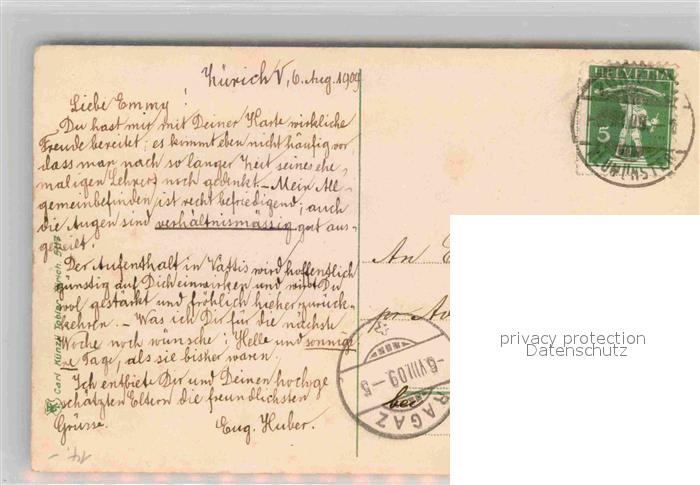 Zürich V, 6. Aug. 1909
Liebe Emmy!
Du hast mir mit Deiner Karte wirkliche
Freude bereitet; es kommt eben nicht häufig vor
dass man nach so langer Zeit seines ehe-
maligen Lehrers noch gedenkt. – Mein All-
gemeinbefinden ist recht befriedigend; auch
die Augen sind verhältnismässig gut aus-
geheilt.
Der Aufenthalt in Vättis wird hoffentlich
günstig auf Dich einwirken und wirst Du
wol gestärkt und fröhlich hieher zurück-
kehren. – Was ich Dir für die nächste
Woche noch wünsche: Helle und sonnige-
re Tage, als sie bisher waren.
Ich entbiete Dir und Deinen hochge
schätzten Eltern die freundlichsten
Grüsse.
Eug. Huber.
Carl Künzli Tobler, Zürich
HELVETIA
5
An E
pr. Ad
bei
RAGAZ
-6.VIII.09-5
privacy protection
Datenschutz